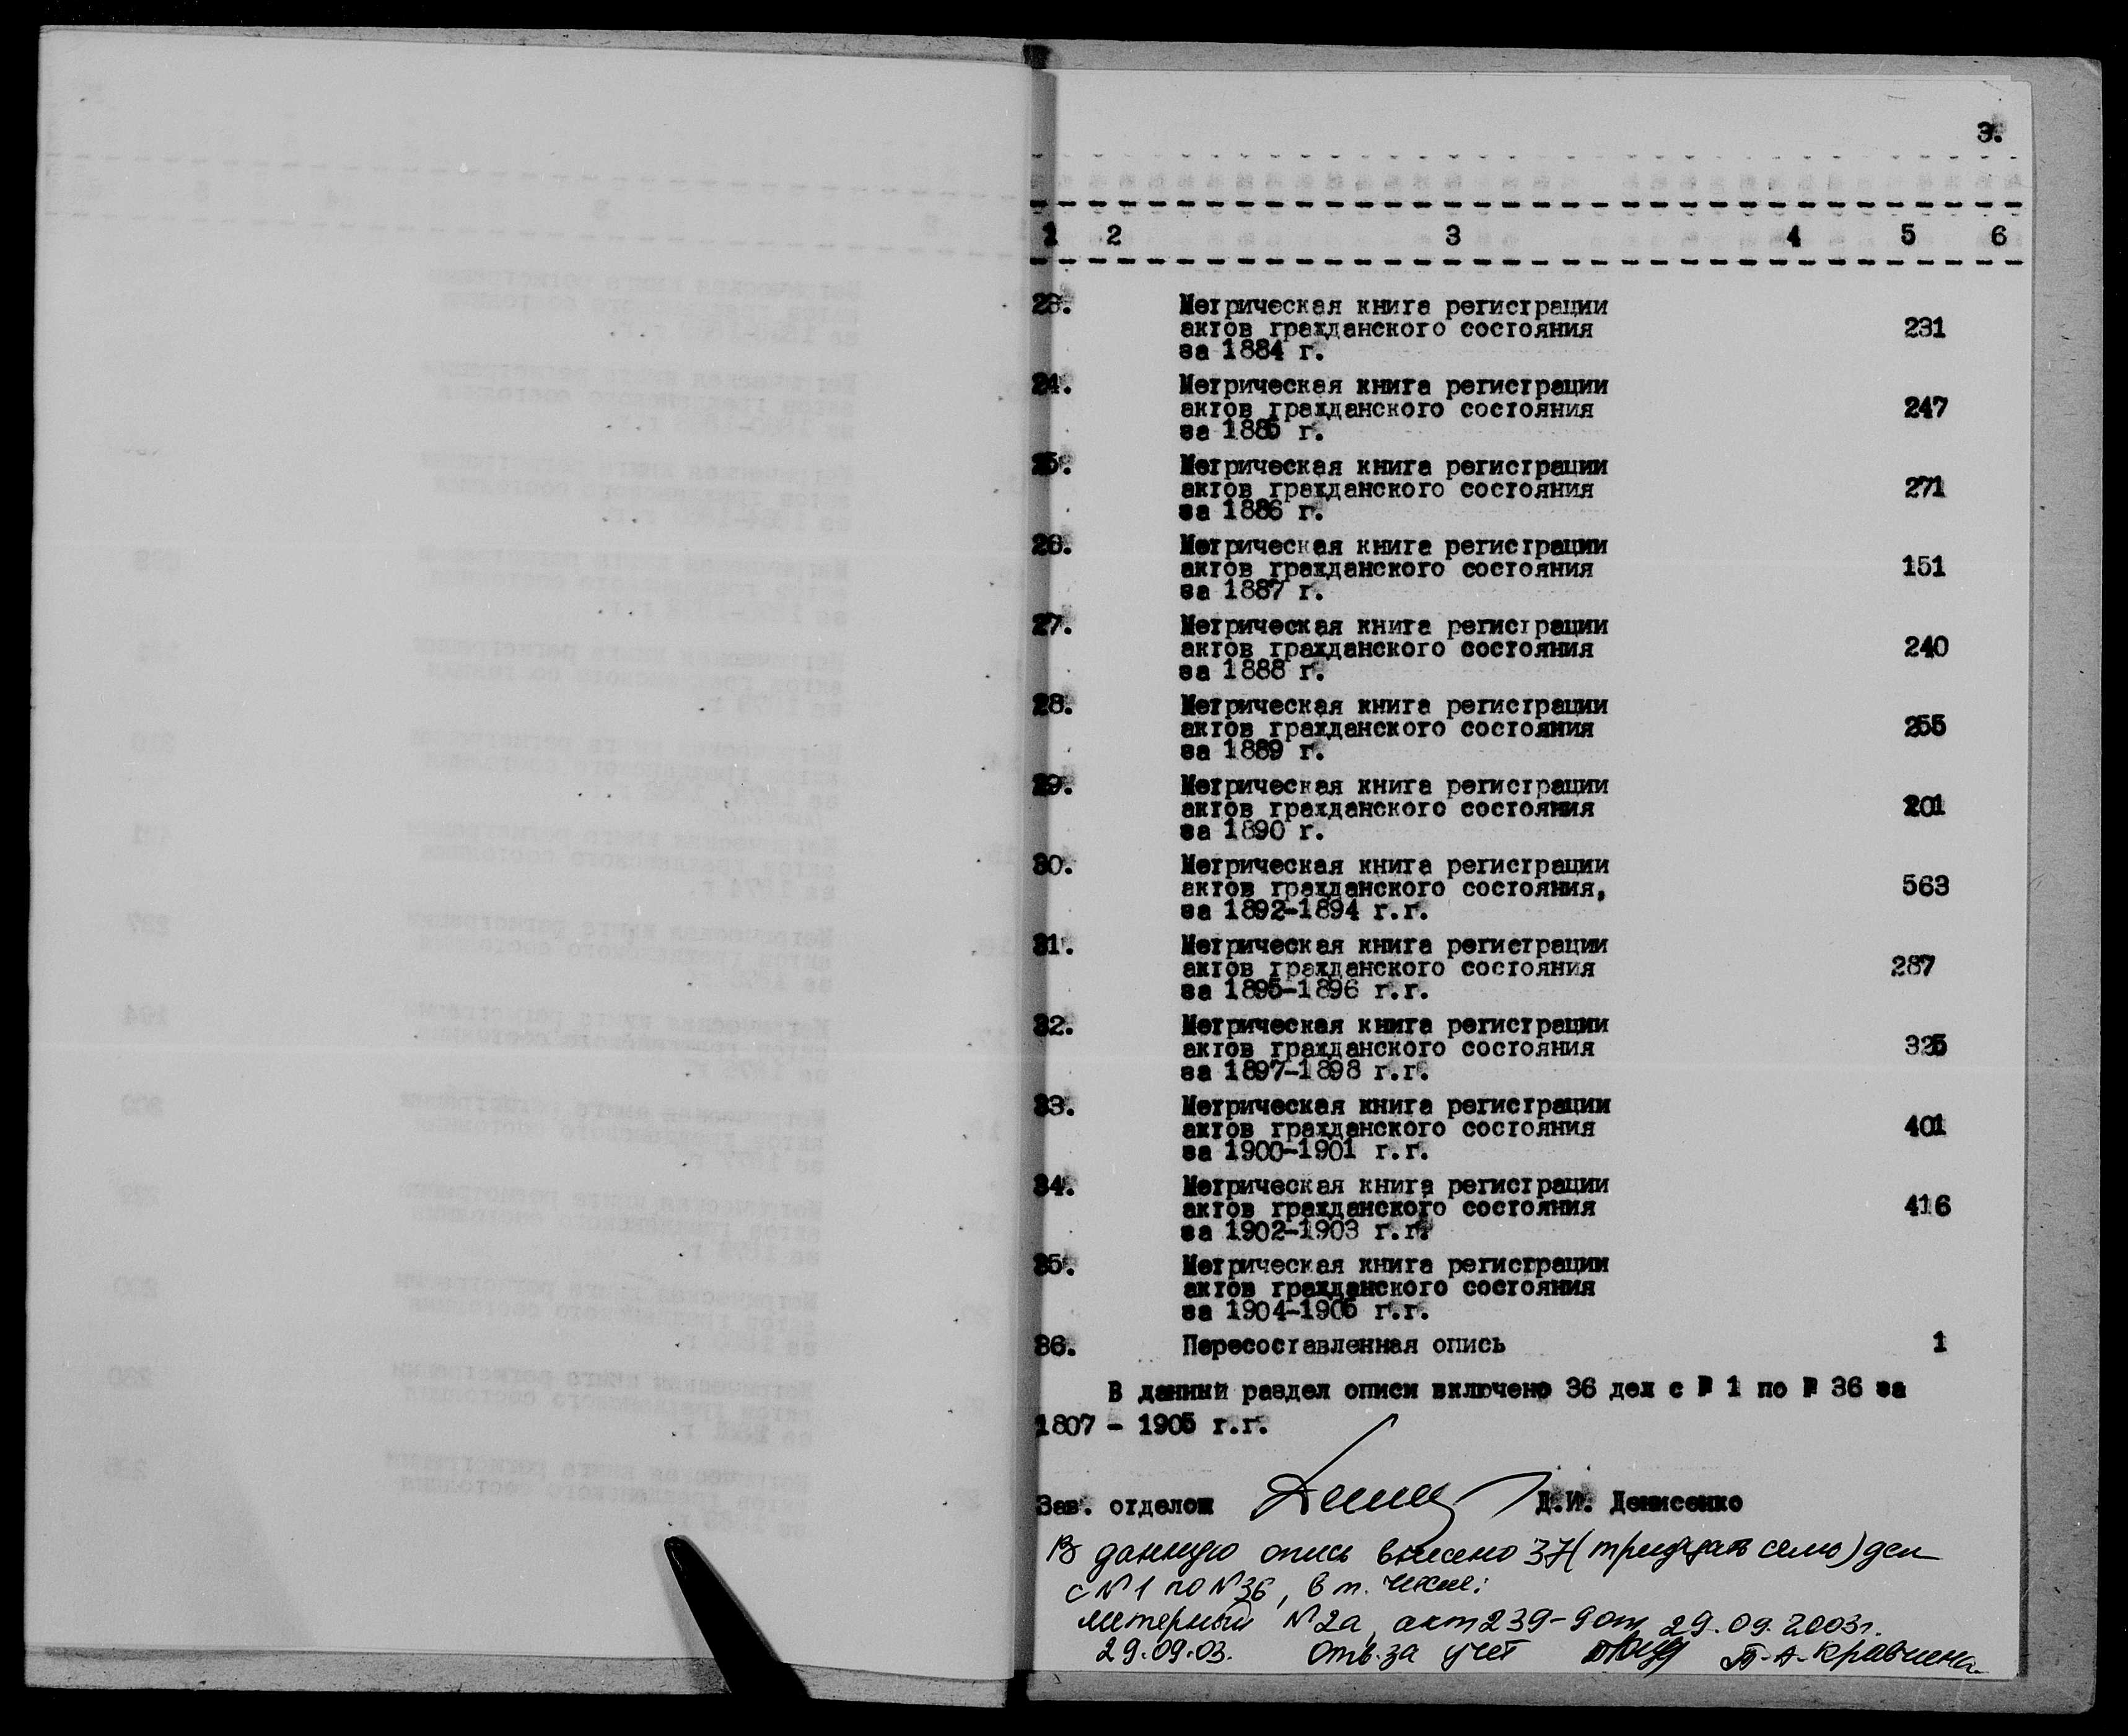 3.
1 2 3 4 5 6
23. Метрическая книга регистрации
актов гражданского состояния 231
за 1884 г.
24. Метрическая книга регистрации
актов гражданского состояния 247
за 1885 г.
25. Метрическая книга регистрации
актов гражданского состояния 271
за 1886 г.
26. Метрическая книга регистрации
актов гражданского состояния 151
за 1887 г.
27. Метрическая книга регистрации
актов гражданского состояния 240
за 1888 г.
28. Метрическая книга регистрации
актов гражданского состояния 255
за 1889 г.
29. Метрическая книга регистрации
актов гражданского состояния 201
за 1890 г.
30. Метрическая книга регистрации
актов гражданского состояния, 563
за 1892-1894 г.г.
31. Метрическая книга регистрации
актов гражданского состояния 287
за 1895-1896 г.г.
32. Метрическая книга регистрации
актов гражданского состояния 325
за 1897-1898 г.г.
33. Метрическая книга регистрации
актов гражданского состояния 401
за 1900-1901 г.г.
34. Метрическая книга регистрации
актов гражданского состояния 416
за 1902-1903 г.г.
35. Метрическая книга регистрации
актов гражданского состояния
за 1904-1905 г.г.
36. Пересоставленная опись 1
В данный раздел описи включено 36 дел с № 1 по № 36 за
1807 - 1905 г.г.
Зав. отделом Д.И. Денисенко
В данную опись внесено 37 (тридцать семь) дел
с N 1 по N 36, в т. числе:
литерный N 2а, акт 239-9 от 29.09.2003г.
29.09.03. Отв. за учет